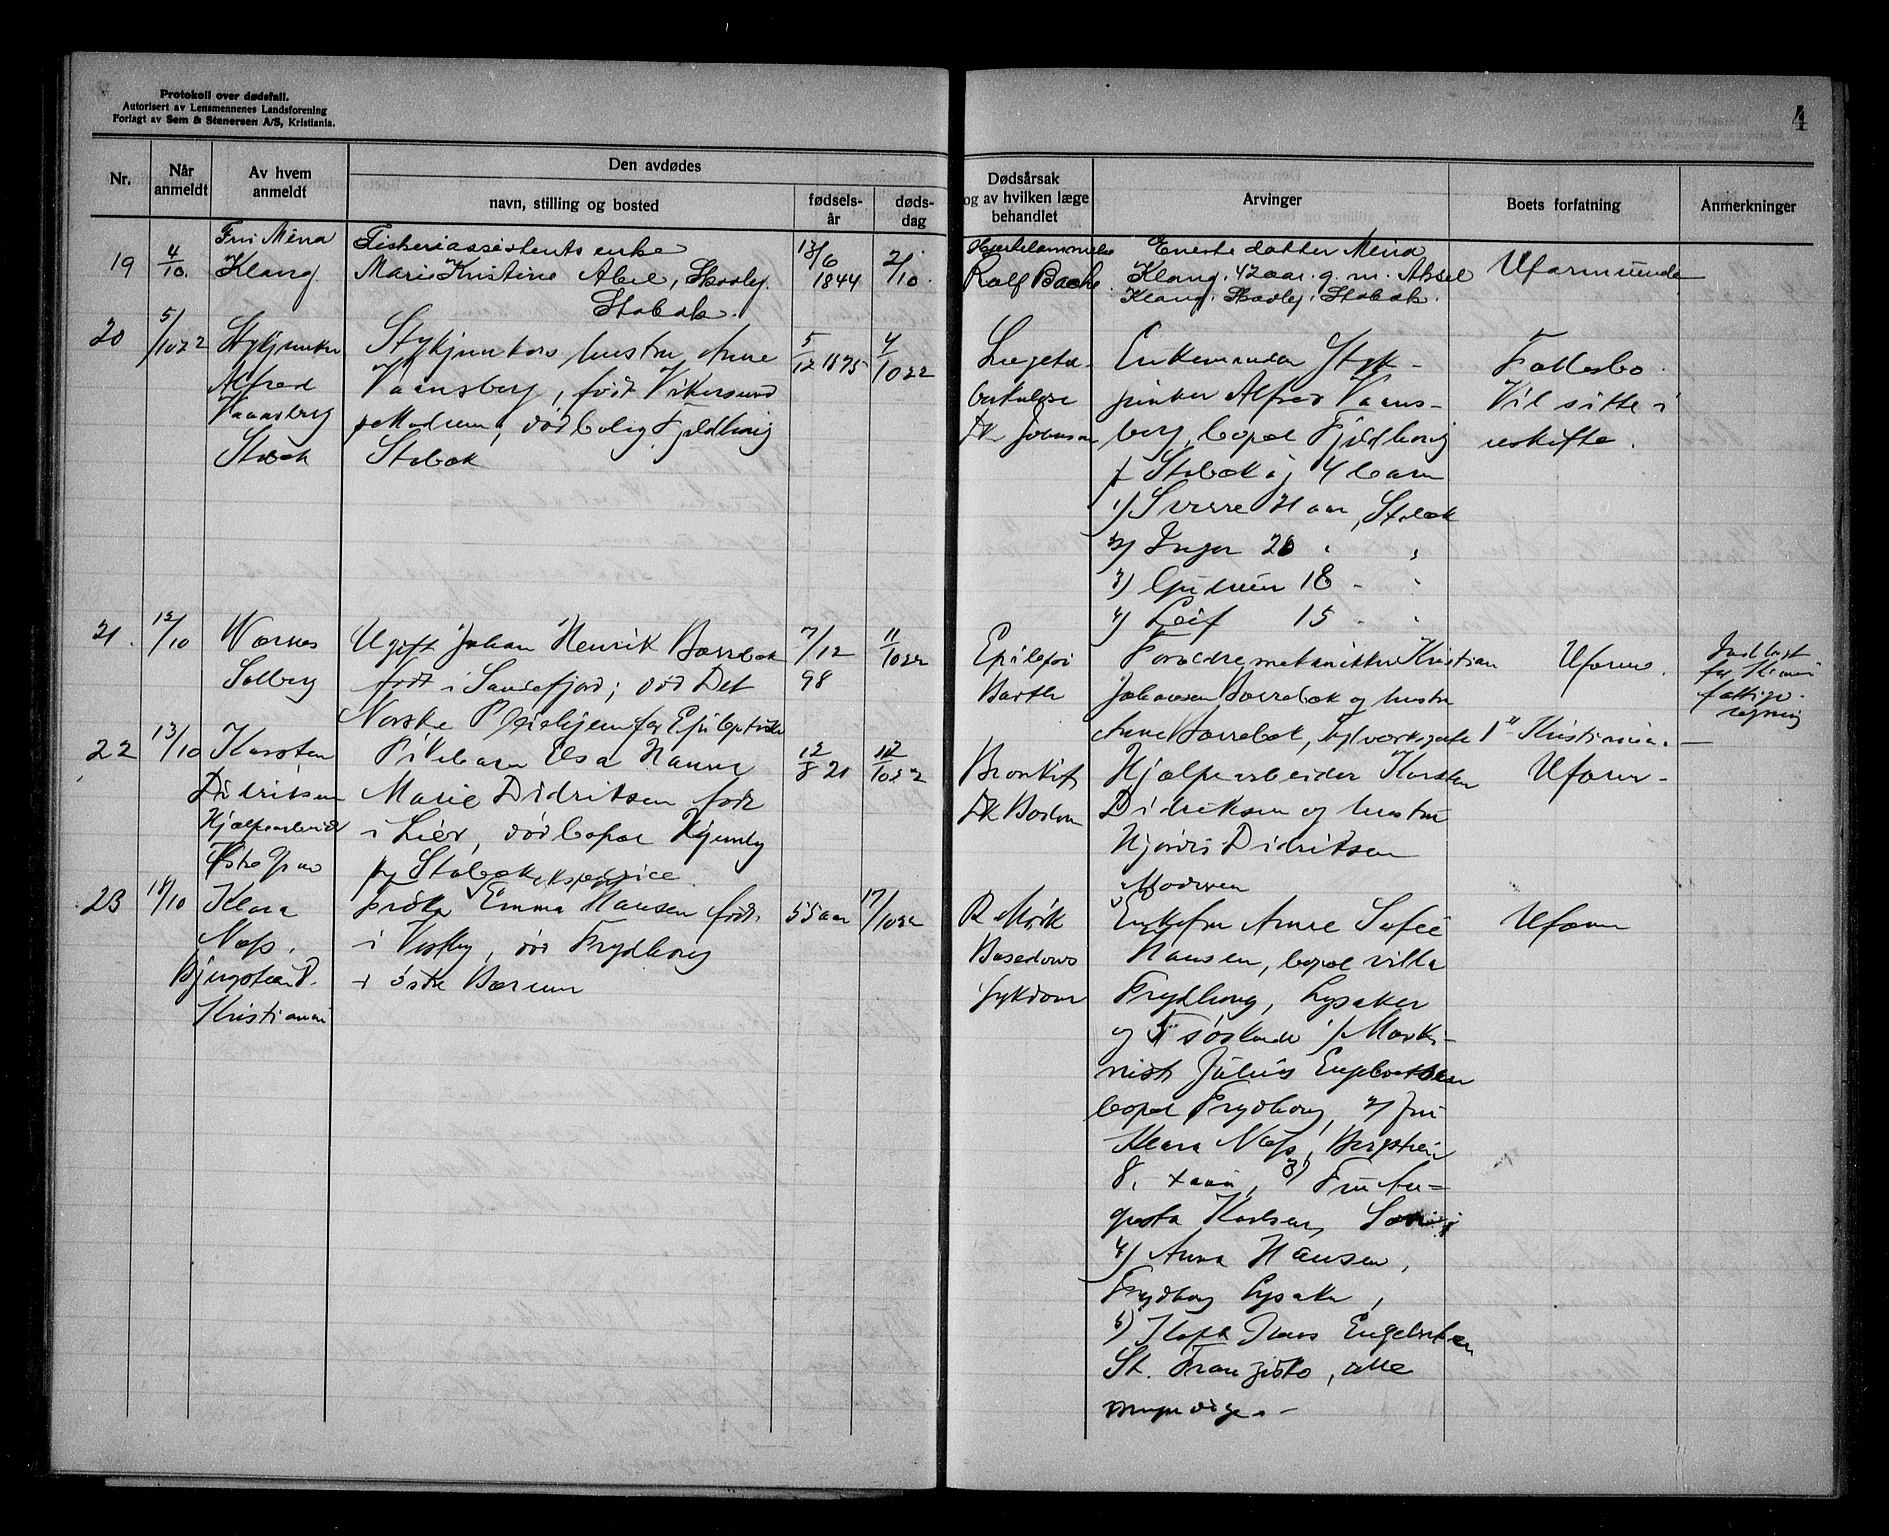 Protokoll over dødsfall.
Autorisert av Lensmennenes Landsforening
Forlagt av Sem & Stenersen A/S, Kristiania.
4
Nr.
Når anmeldt
Av hvem anmeldt
Den avdødes
navn, stilling og bosted
fødsels-år
døds-dag
Dødsårsak
og av hvilken læge
behandlet
Arvinger
Boets forfatning
Anmerkninger
19
4/10.
Fru Mina
Klang.
Fiskeriassistents enke
Marie Kristine Abel,
Stabæk.
13/6
1844
2/10.
Hjertelammelse
Rolf Bache.
Eneste datter Mina
Klang. 42 aar. g. m. Aksel
Klang. Stabæk.
Uformuende
20
5/1022
Stykjunker
Alfred
Vaansberg
Stabæk
Stykjunkers hustru, Anne
Vaansberg, født Vikersund
pr Modum, død bolig Fjeldhoug
Stabæk
5/12 1875
4/1022
Lungetu-
berkulose
Dr Johnson
Enkemanden Styk-
junker Alfred Vaans-
berg, bopel Fjeldhoug
pr Stabæk, 4 barn
1) Sverre 21 aar, Stabæk
2) Inger 20 " "
3) Gudrun 18 - "
4) Leif 15 - "
Fællesbo.
Vil sitte i
uskifte.
21.
12/10
Wærnes
Solberg
Ugift Johan Henrik Borrebæk
født i Sandefjord; død Det
Norske Pleiehjem for Epileptiske
7/12
98
11/1022
Epilepsi
Barth
Forældre mekaniker Kristian
Johansen Borrebæk og hustru
Anne Borrebæk, 1" Kristiania.
Uform.
Indlagt
for Kr.ania
fattigv.
regning
22
13/10
Karsten
Didriksen
Hjælpearbeid
Østre
Pikebarn Elsa Hanna
Marie Didriksen født
i Lier, død bopel
pr Stabæk
12/8 21
12/1022
Bronkit
Dr
Hjælpearbeider Karsten
Didriksen og hustru
Hjørdis Didriksen
Uform-
23
18/10
Klara
Næss,
Kristiania
ekspeditrice
frøken Emma Hansen født
i Vestby, død Frydborg
i østre Bærum
55 aar
17/1022
R Mørk
Basedows
sykdom
Moderen
Enkefru Anne Sofie
Hansen, bopel villa
Frydborg, Lysaker
og 5 søskende 1) Maski-
nist Julius Engebretsen
bopel Frydborg, 2) fru
Klara Næss,
8. Kr.ania, 3) Fru Au-
gusta Karlsen,
4) Anna Hansen,
Frydborg Lysaker,
5) Hans Engebretsen
St. Franzisko, alle
myndige. -
Uform